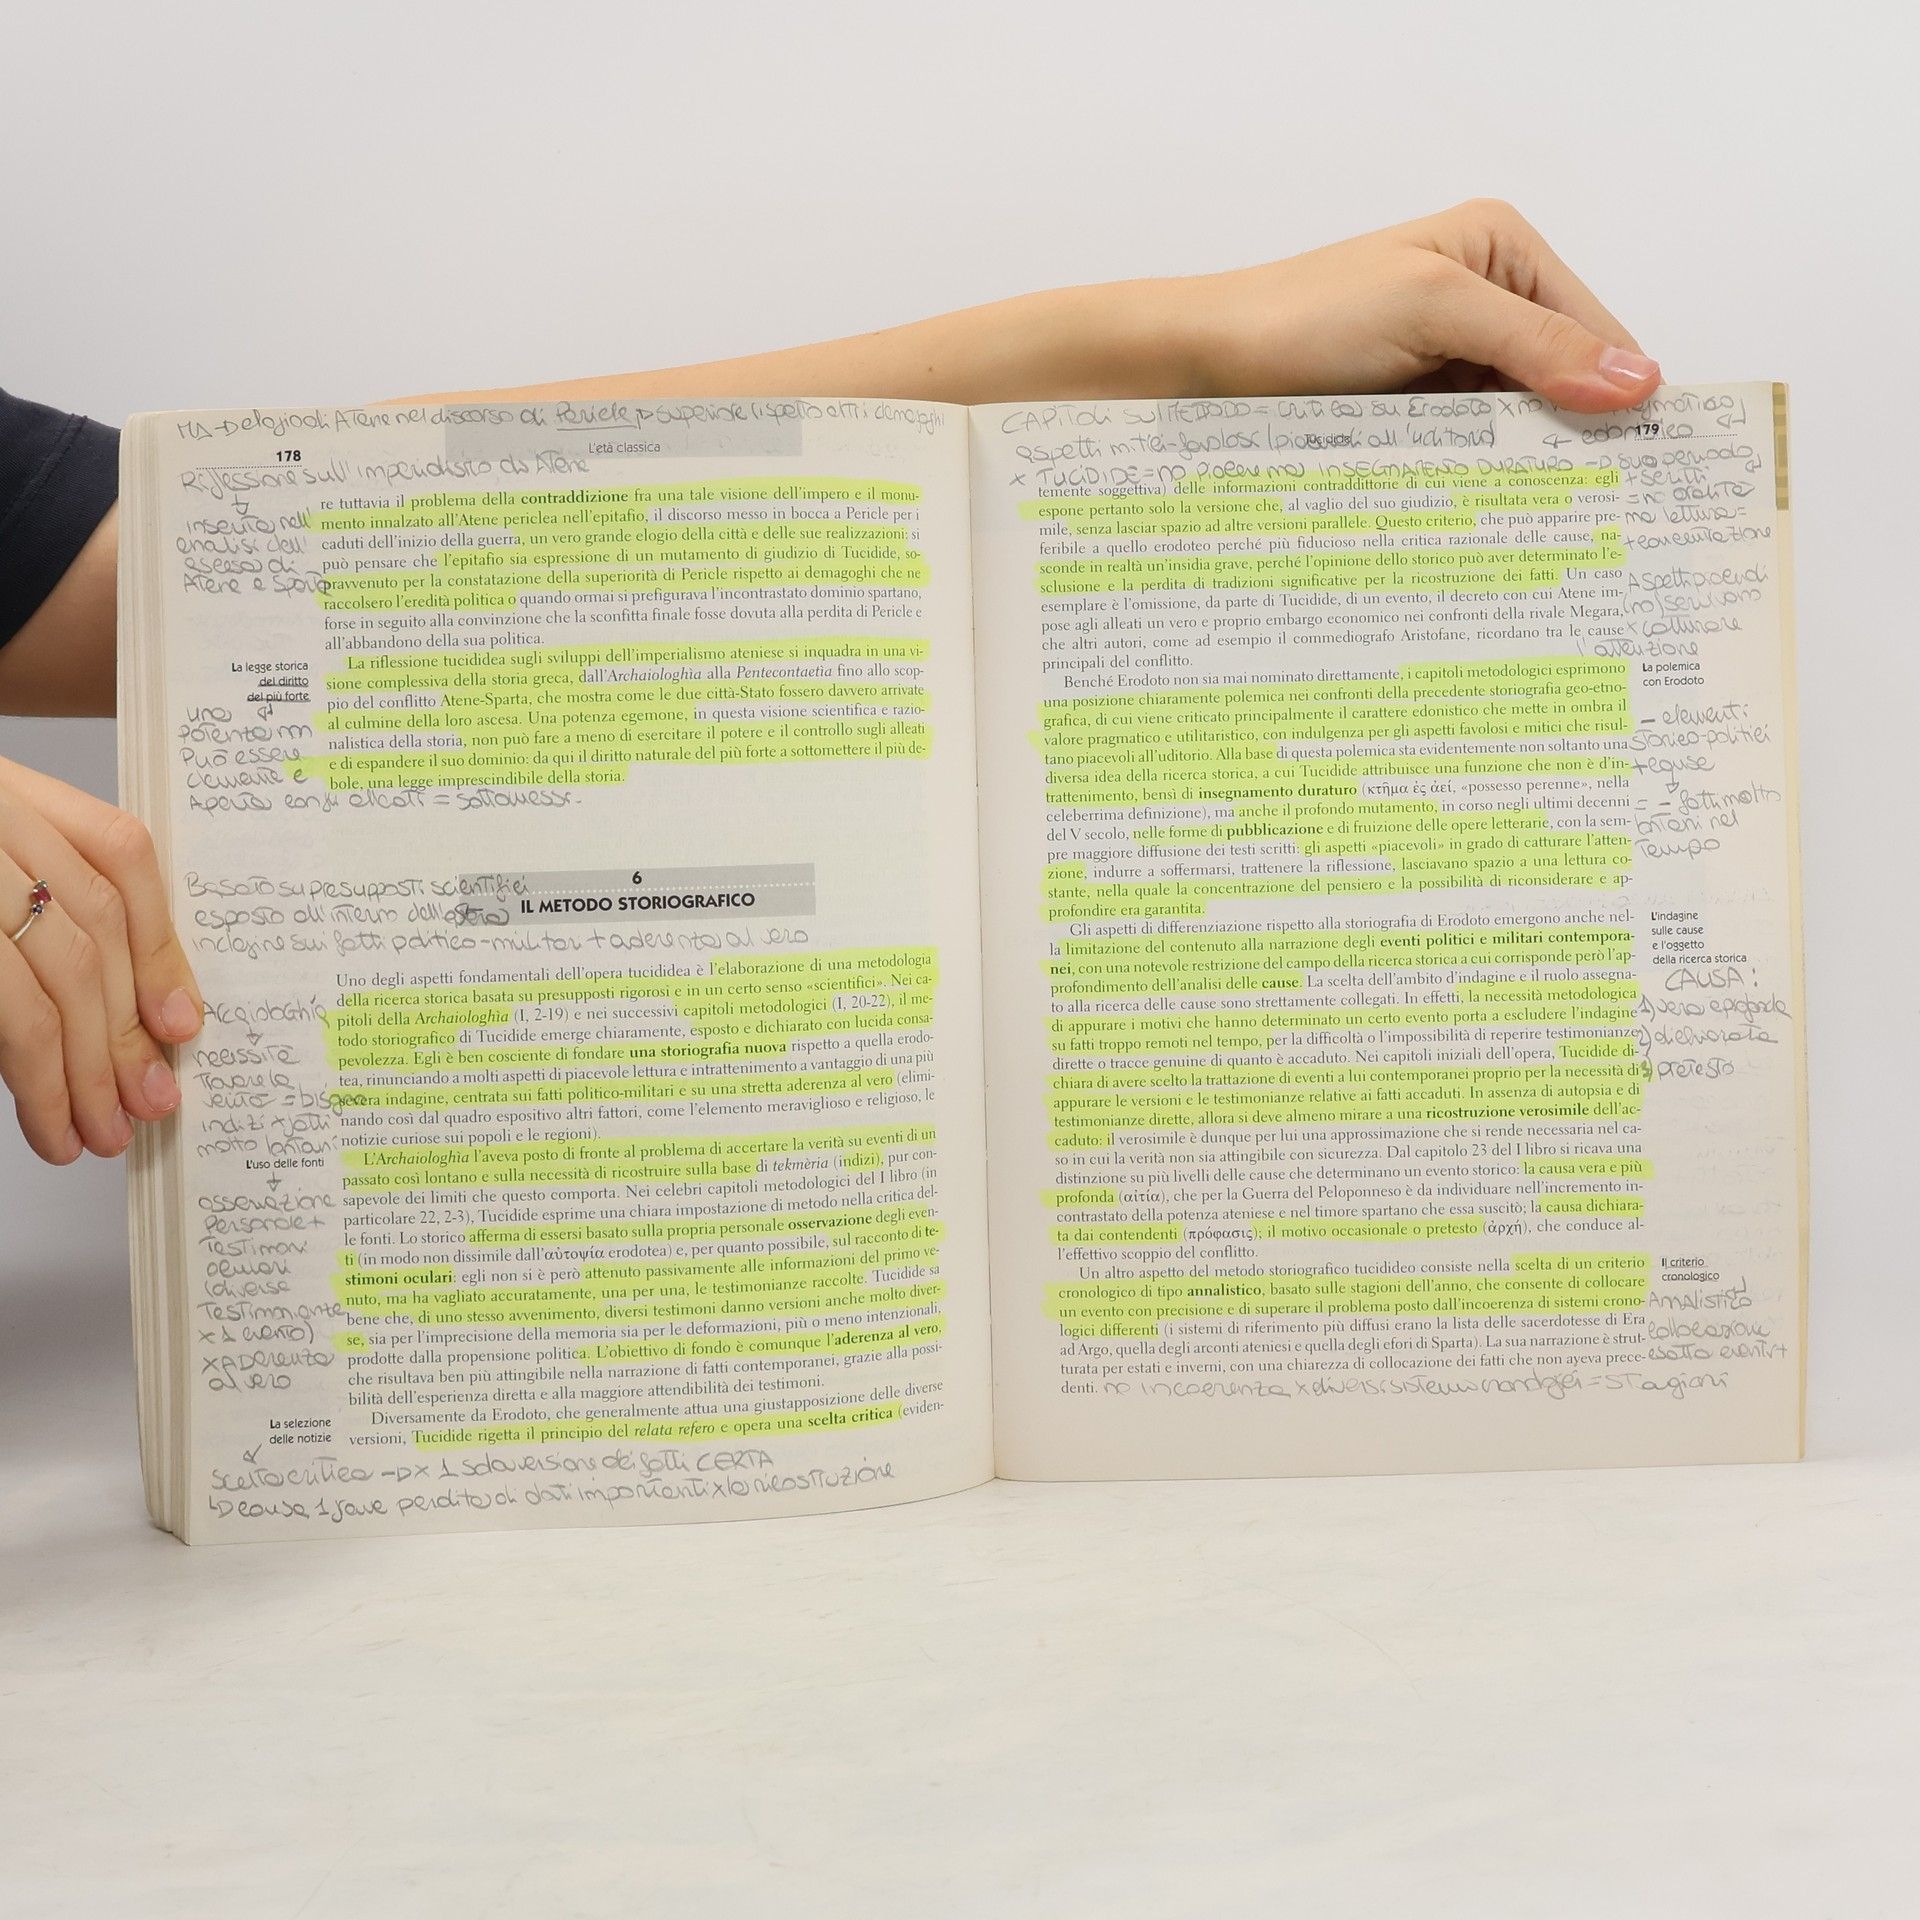 MA → elogio di Atene nel discorso di Pericle → superiore rispetto altri demagoghi
178
L'età classica
Riflessione sull'imperialismo di Atene
inserita nell'
analisi dell'
ascesa di
Atene e Sparta
re tuttavia il problema della contraddizione fra una tale visione dell'impero e il monu-
mento innalzato all'Atene periclea nell'epitafio, il discorso messo in bocca a Pericle per i
caduti dell'inizio della guerra, un vero grande elogio della città e delle sue realizzazioni: si
può pensare che l'epitafio sia espressione di un mutamento di giudizio di Tucidide, so-
pravvenuto per la constatazione della superiorità di Pericle rispetto ai demagoghi che ne
raccolsero l'eredità politica o quando ormai si prefigurava l'incontrastato dominio spartano,
forse in seguito alla convinzione che la sconfitta finale fosse dovuta alla perdita di Pericle e
all'abbandono della sua politica.
La legge storica
del diritto
del più forte
una
potenza nn
può essere
clemente e
aperta con gli alleati = sottomessi.
La riflessione tucididea sugli sviluppi dell'imperialismo ateniese si inquadra in una vi-
sione complessiva della storia greca, dall'Archaiologhìa alla Pentecontaetìa fino allo scop-
pio del conflitto Atene-Sparta, che mostra come le due città-Stato fossero davvero arrivate
al culmine della loro ascesa. Una potenza egemone, in questa visione scientifica e razio-
nalistica della storia, non può fare a meno di esercitare il potere e il controllo sugli alleati
e di espandere il suo dominio: da qui il diritto naturale del più forte a sottomettere il più de-
bole, una legge imprescindibile della storia.
6
IL METODO STORIOGRAFICO
Basato su presupposti scientifici
esposto all'interno dell'opera
indagine sui fatti politico-militari + aderenza al vero
Uno degli aspetti fondamentali dell'opera tucididea è l'elaborazione di una metodologia
della ricerca storica basata su presupposti rigorosi e in un certo senso «scientifici». Nei ca-
pitoli della Archaiologhìa (I, 2-19) e nei successivi capitoli metodologici (I, 20-22), il me-
todo storiografico di Tucidide emerge chiaramente, esposto e dichiarato con lucida consa-
pevolezza. Egli è ben cosciente di fondare una storiografia nuova rispetto a quella erodo-
tea, rinunciando a molti aspetti di piacevole lettura e intrattenimento a vantaggio di una più
severa indagine, centrata sui fatti politico-militari e su una stretta aderenza al vero (elimi-
nando così dal quadro espositivo altri fattori, come l'elemento meraviglioso e religioso, le
notizie curiose sui popoli e le regioni).
necessità
trovare la
indizi x fatti
molto lontani
L'uso delle fonti
osservazione
personale +
testimoni
oculari
(diverse
testimonianze
x 1 evento)
x ADERENZA
al vero
L'Archaiologhìa l'aveva posto di fronte al problema di accertare la verità su eventi di un
passato così lontano e sulla necessità di ricostruire sulla base di tekmèria (indizi), pur con-
sapevole dei limiti che questo comporta. Nei celebri capitoli metodologici del I libro (in
particolare 22, 2-3), Tucidide esprime una chiara impostazione di metodo nella critica del-
le fonti. Lo storico afferma di essersi basato sulla propria personale osservazione degli even-
ti (in modo non dissimile dall'αὐτοψία erodotea) e, per quanto possibile, sul racconto di te-
stimoni oculari: egli non si è però attenuto passivamente alle informazioni del primo ve-
nuto, ma ha vagliato accuratamente, una per una, le testimonianze raccolte. Tucidide sa
bene che, di uno stesso avvenimento, diversi testimoni danno versioni anche molto diver-
se, sia per l'imprecisione della memoria sia per le deformazioni, più o meno intenzionali,
prodotte dalla propensione politica. L'obiettivo di fondo è comunque l'aderenza al vero,
che risultava ben più attingibile nella narrazione di fatti contemporanei, grazie alla possi-
bilità dell'esperienza diretta e alla maggiore attendibilità dei testimoni.
La selezione
delle notizie
Diversamente da Erodoto, che generalmente attua una giustapposizione delle diverse
versioni, Tucidide rigetta il principio del relata refero e opera una scelta critica (eviden-
scelta critica → x 1 sola versione dei fatti CERTA
causa 1 grave perdita di dati importanti x la ricostruzione
CAPITOLI SUL METODO = critica su Erodoto x no
Tucidide
179
aspetti mitici-favolosi (piacevoli all'uditorio)
x TUCIDIDE = no piacere ma INSEGNAMENTO DURATURO → suo periodo
+ scritti
= no oralità
ma lettura =
+ concentrazione
Aspetti piacevoli
(no) servivano
x catturare
l'attenzione
temente soggettiva) delle informazioni contraddittorie di cui viene a conoscenza: egli
espone pertanto solo la versione che, al vaglio del suo giudizio, è risultata vera o verosi-
mile, senza lasciar spazio ad altre versioni parallele. Questo criterio, che può apparire pre-
feribile a quello erodoteo perché più fiducioso nella critica razionale delle cause, na-
sconde in realtà un'insidia grave, perché l'opinione dello storico può aver determinato l'e-
sclusione e la perdita di tradizioni significative per la ricostruzione dei fatti. Un caso
esemplare è l'omissione, da parte di Tucidide, di un evento, il decreto con cui Atene im-
pose agli alleati un vero e proprio embargo economico nei confronti della rivale Megara,
che altri autori, come ad esempio il commediografo Aristofane, ricordano tra le cause
principali del conflitto.
La polemica
con Erodoto
- elementi
storico-politici
+ cause
= - fatti molto
lontani nel
tempo
Benché Erodoto non sia mai nominato direttamente, i capitoli metodologici esprimono
una posizione chiaramente polemica nei confronti della precedente storiografia geo-etno-
grafica, di cui viene criticato principalmente il carattere edonistico che mette in ombra il
valore pragmatico e utilitaristico, con indulgenza per gli aspetti favolosi e mitici che risul-
tano piacevoli all'uditorio. Alla base di questa polemica sta evidentemente non soltanto una
diversa idea della ricerca storica, a cui Tucidide attribuisce una funzione che non è d'in-
trattenimento, bensì di insegnamento duraturo (κτῆμα ἐς ἀεί, «possesso perenne», nella
celeberrima definizione), ma anche il profondo mutamento, in corso negli ultimi decenni
del V secolo, nelle forme di pubblicazione e di fruizione delle opere letterarie, con la sem-
pre maggiore diffusione dei testi scritti: gli aspetti «piacevoli» in grado di catturare l'atten-
zione, indurre a soffermarsi, trattenere la riflessione, lasciavano spazio a una lettura co-
stante, nella quale la concentrazione del pensiero e la possibilità di riconsiderare e ap-
profondire era garantita.
L'indagine
sulle cause
e l'oggetto
della ricerca storica
CAUSA:
1) vera e profonda
2) dichiarata
3) pretesto
Gli aspetti di differenziazione rispetto alla storiografia di Erodoto emergono anche nel-
la limitazione del contenuto alla narrazione degli eventi politici e militari contempora-
nei, con una notevole restrizione del campo della ricerca storica a cui corrisponde però l'ap-
profondimento dell'analisi delle cause. La scelta dell'ambito d'indagine e il ruolo assegna-
to alla ricerca delle cause sono strettamente collegati. In effetti, la necessità metodologica
di appurare i motivi che hanno determinato un certo evento porta a escludere l'indagine
su fatti troppo remoti nel tempo, per la difficoltà o l'impossibilità di reperire testimonianze
dirette o tracce genuine di quanto è accaduto. Nei capitoli iniziali dell'opera, Tucidide di-
chiara di avere scelto la trattazione di eventi a lui contemporanei proprio per la necessità di
appurare le versioni e le testimonianze relative ai fatti accaduti. In assenza di autopsia e di
testimonianze dirette, allora si deve almeno mirare a una ricostruzione verosimile dell'ac-
caduto: il verosimile è dunque per lui una approssimazione che si rende necessaria nel ca-
so in cui la verità non sia attingibile con sicurezza. Dal capitolo 23 del I libro si ricava una
distinzione su più livelli delle cause che determinano un evento storico: la causa vera e più
profonda (αἰτία), che per la Guerra del Peloponneso è da individuare nell'incremento in-
contrastato della potenza ateniese e nel timore spartano che essa suscitò; la causa dichiara-
ta dai contendenti (πρόφασις); il motivo occasionale o pretesto (ἀρχή), che conduce al-
l'effettivo scoppio del conflitto.
Il criterio
cronologico
Annalistico
collocazione
esatta eventi +
Un altro aspetto del metodo storiografico tucidideo consiste nella scelta di un criterio
cronologico di tipo annalistico, basato sulle stagioni dell'anno, che consente di collocare
un evento con precisione e di superare il problema posto dall'incoerenza di sistemi crono-
logici differenti (i sistemi di riferimento più diffusi erano la lista delle sacerdotesse di Era
ad Argo, quella degli arconti ateniesi e quella degli efori di Sparta). La sua narrazione è strut-
turata per estati e inverni, con una chiarezza di collocazione dei fatti che non aveva prece-
denti. no incoerenza x diversi sistemi cronologici = stagioni